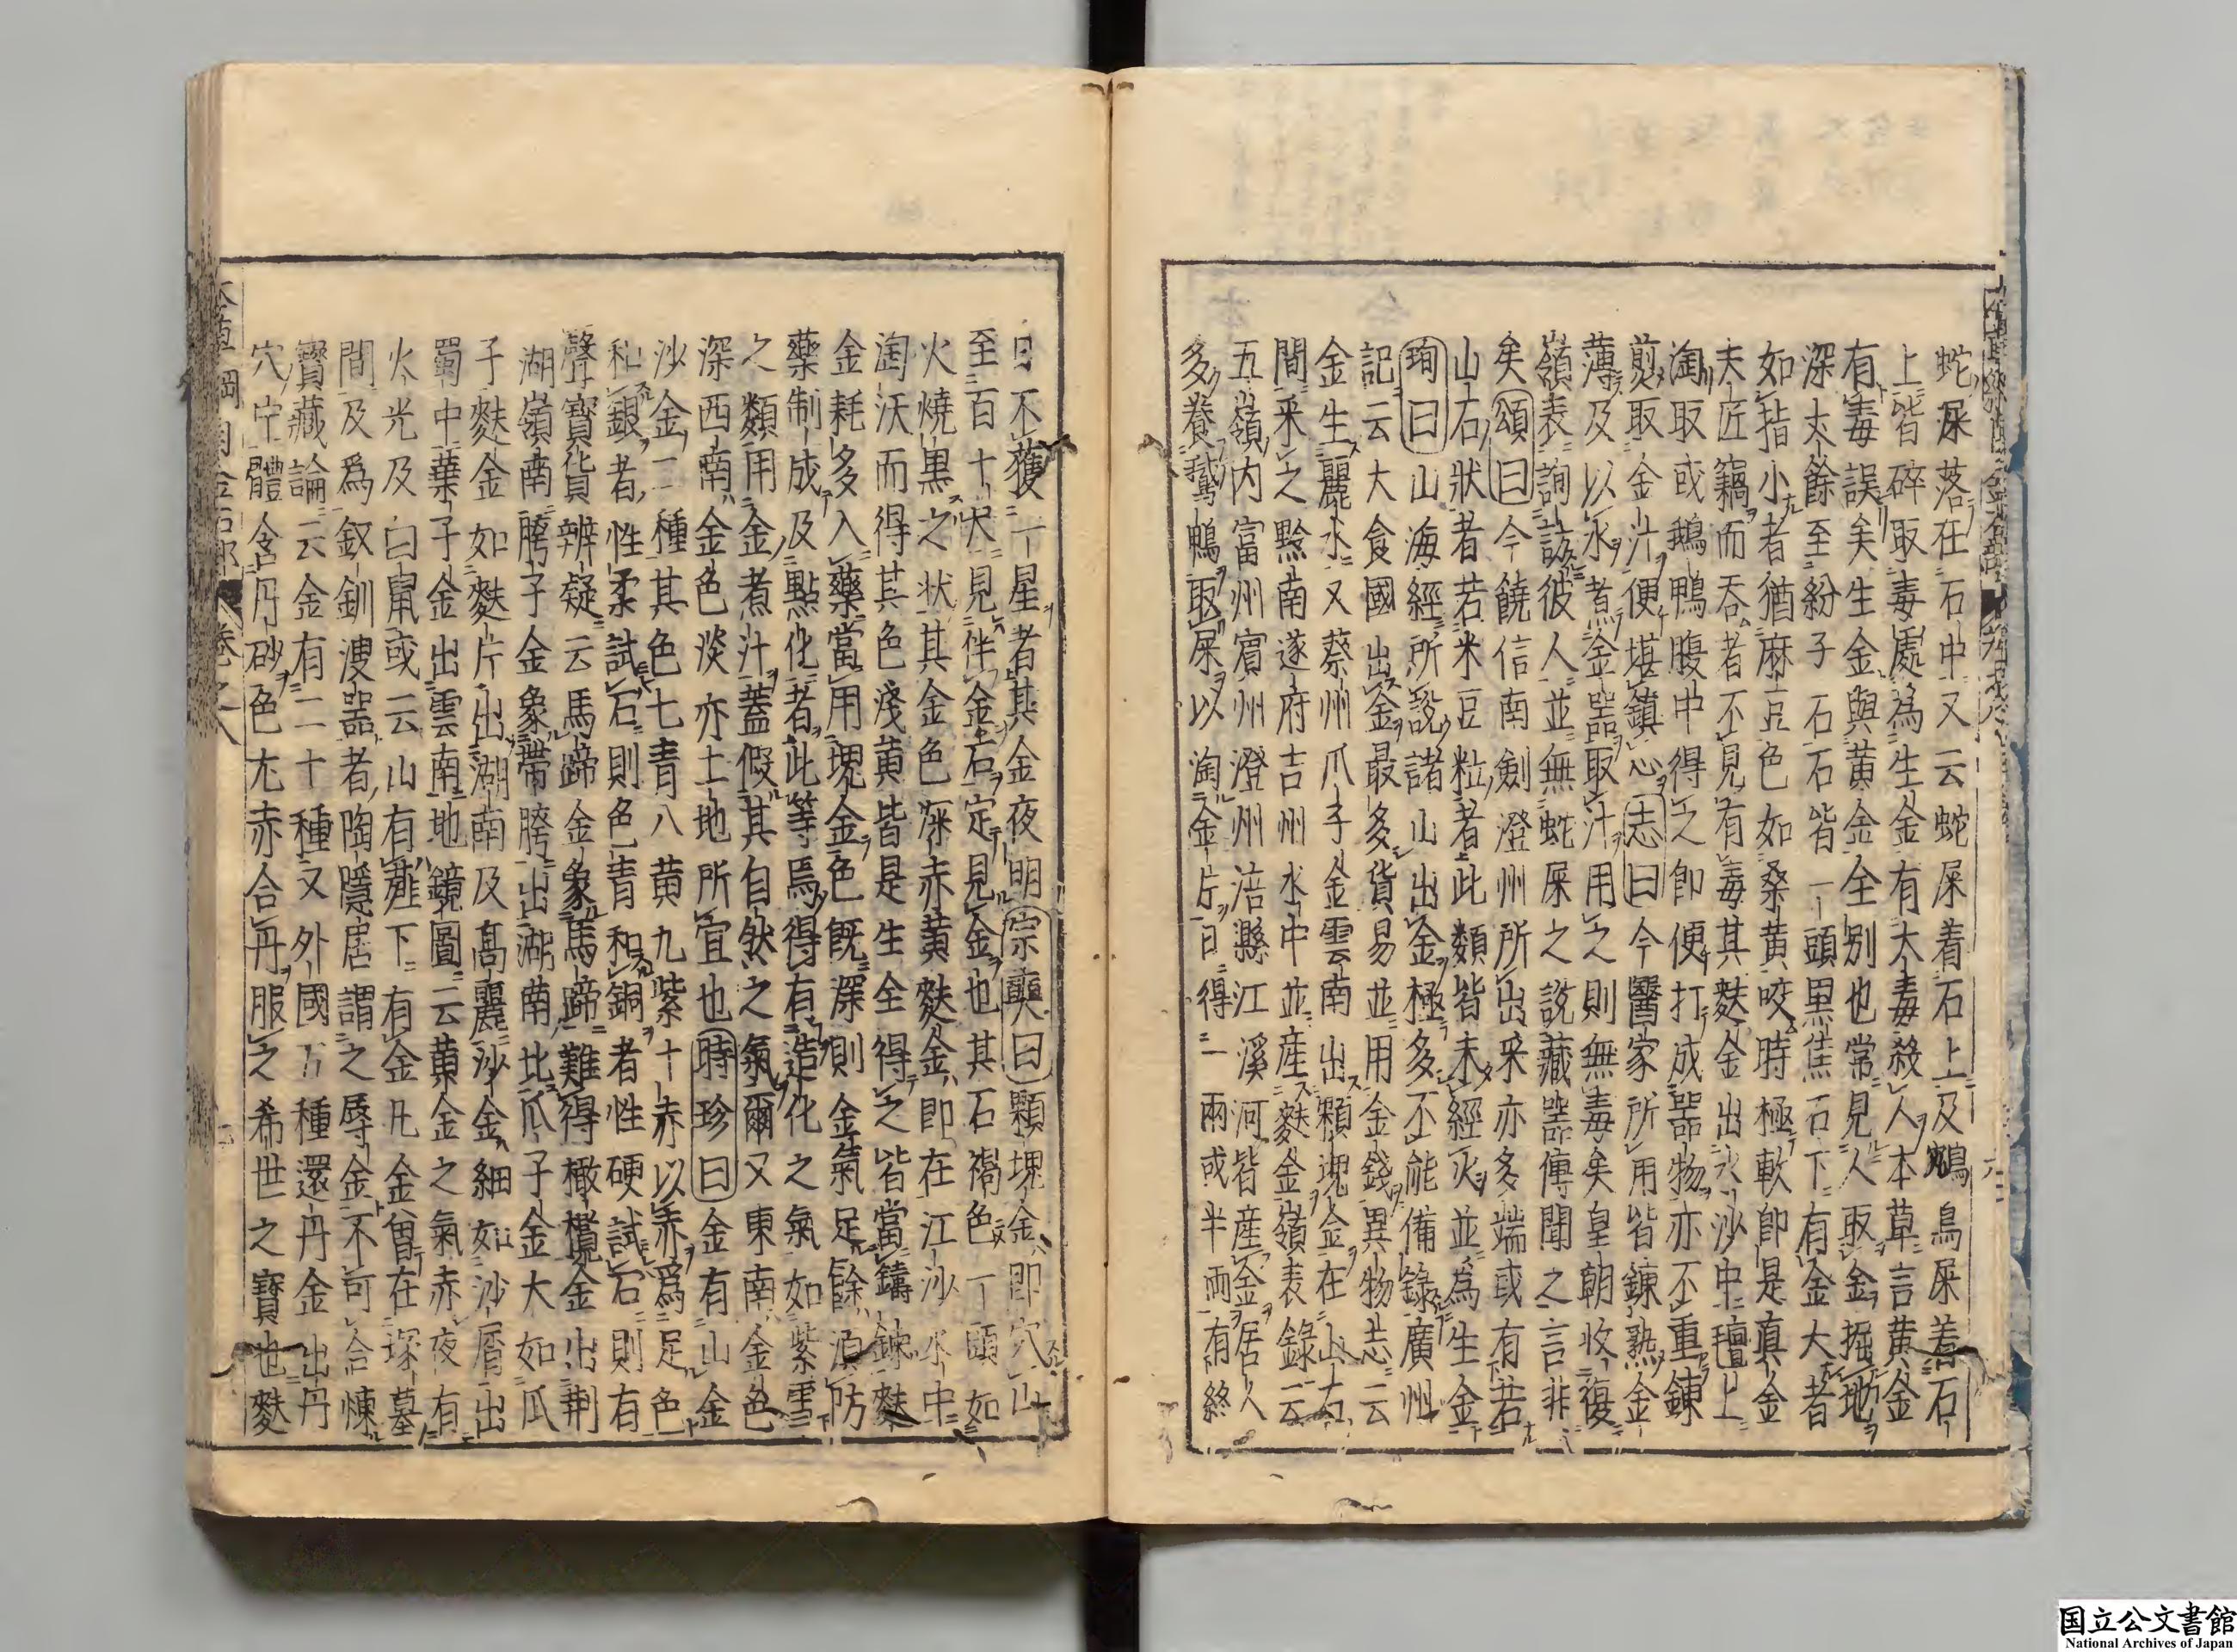 蛇屎落在石中又云蛇屎着石上及鴆鳥屎着石
上皆碎取毒處為生金有大毒殺人本草言黃金
有毒誤矣生金與黃金全別也常見人取金掘地
深丈餘至紛子石石皆一頭黒焦石下有金大者
如指小者猶麻豆色如桑黃咬時極軟即是真金
夫匠竊而吞者不見有毒其麩金出水沙中氊上
淘取或鵝鴨腹中得之即便打成器物亦不重鍊
煎取金汁便堪鎮心志曰今醫家所用皆鍊熟金
薄及以水煮金器取汁用之則無毒矣皇朝收復
嶺表詢訪彼人並無蛇屎之說藏器傳聞之言非
矣頌曰今饒信南劍澄州所出采亦多端或有若
山石狀者若米豆粒者此類皆未經火並為生金
珣曰山海經所說諸山出金極多不能備錄廣州
記云大食國出金最多貨易並用金錢異物志云
金生麗水又蔡州瓜子金雲南出顆塊金在山石
間采之黔南遂府吉州水中並産麩金嶺表錄云
五嶺内富州賓州澄州涪縣江溪河皆産金居人
多養鵞鴨取屎以淘金片日得一兩或半兩有終
日不獲一星者其金夜明宗奭曰顆塊金即穴山
至百十尺見伴金石定見金也其石褐色一頭如
火燒黒之狀其金色深赤黃麩金即在江沙水中
淘沃而得其色淺黃皆是生金得之皆當鑄鍊麩
金耗多入藥當用塊金色既深則金氣足餘須防
藥制成及點化者此等焉得有造化之氣如紫雪
之類用金煮汁蓋假其自然之氣爾又東南金色
深西南金色淡亦土地所宜也時珍曰金有山金
沙金二種其色七青八黃九紫十赤以赤爲足色
和銀者性柔試石則色青和銅者性硬試石則有
聲寶貨辨疑云馬蹄金象馬蹄難得橄欖金出荆
湖嶺南胯子金象帶胯出湖南北瓜子金大如瓜
子麩金如麩片出湖南及高麗沙金細如沙屑出
蜀中葉子金出雲南地鏡圖云黃金之氣赤夜有
火光及白鼠或云山有薤下有金凡金曾在塚墓
間及爲釵釧溲器者陶隱居謂之辱金不可合煉
寶藏論云金有二十種又外國五種還丹金出丹
穴中體含丹砂色尤赤合丹服之希世之寶也麩
本草綱目金石部 卷之八
国立公文書館
National Archives of Japan